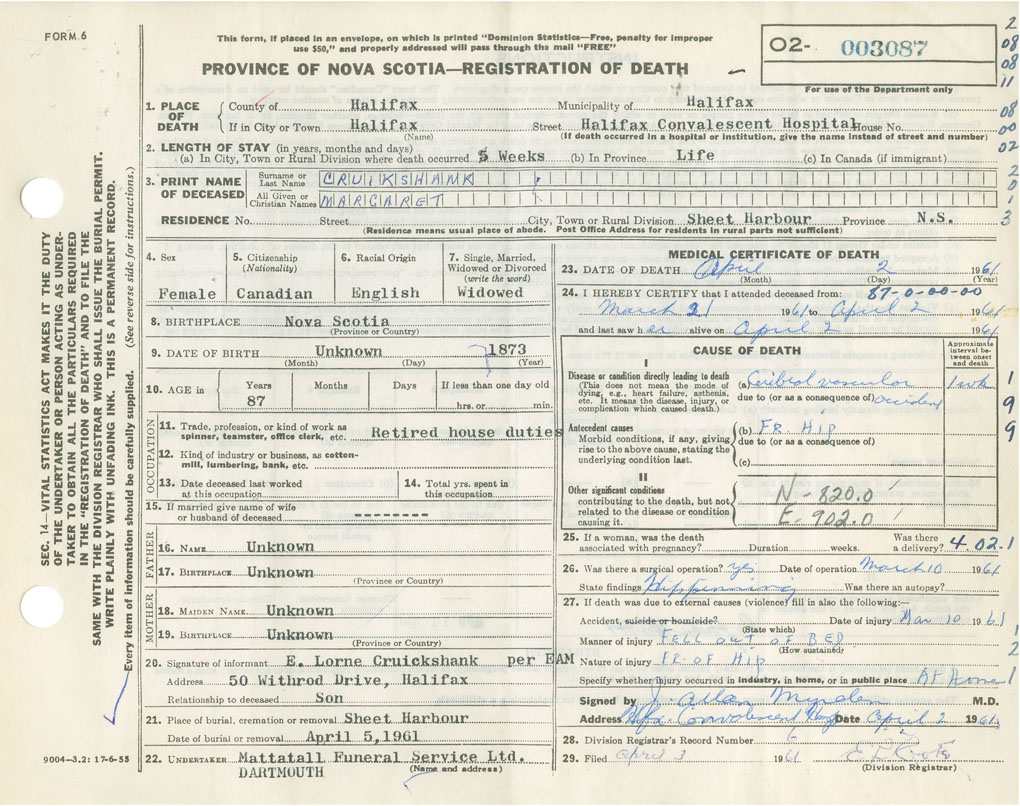 FORM 6
This form, if placed in an envelope, on which is printed "Dominion Statistics—Free, penalty for improper
use $50," and properly addressed will pass through the mail "FREE"
PROVINCE OF NOVA SCOTIA—REGISTRATION OF DEATH
O2- 003087
For use of the Department only
2
08
08
11
08
00
02
2
0
1
3
SEC. 14—VITAL STATISTICS ACT MAKES IT THE DUTY
OF THE UNDERTAKER OR PERSON ACTING AS UNDER-
TAKER TO OBTAIN ALL THE PARTICULARS REQUIRED
IN THE "REGISTRATION OF DEATH" AND TO FILE THE
SAME WITH THE DIVISION REGISTRAR WHO SHALL ISSUE THE BURIAL PERMIT.
WRITE PLAINLY WITH UNFADING INK. THIS IS A PERMANENT RECORD.
Every item of information should be carefully supplied. (See reverse side for instructions.)
1. PLACE OF DEATH
County of Halifax Municipality of Halifax
If in City or Town Halifax Street Halifax Convalescent Hospital House No.
(Name) (If death occurred in a hospital or institution, give the name instead of street and number)
2. LENGTH OF STAY (in years, months and days)
(a) In City, Town or Rural Division where death occurred 5 Weeks (b) In Province Life (c) In Canada (if immigrant)
3. PRINT NAME OF DECEASED
Surname or Last Name CRUIKSHANK
All Given or Christian Names MARGARET
RESIDENCE No. Street City, Town or Rural Division Sheet Harbour Province N.S.
(Residence means usual place of abode. Post Office Address for residents in rural parts not sufficient)
4. Sex
Female
5. Citizenship
(Nationality)
Canadian
6. Racial Origin
English
7. Single, Married,
Widowed or Divorced
(write the word)
Widowed
8. BIRTHPLACE Nova Scotia
(Province or Country)
9. DATE OF BIRTH Unknown 1873
(Month) (Day) (Year)
10. AGE in
Years Months Days If less than one day old
87 hrs. or min.
OCCUPATION
11. Trade, profession, or kind of work as
spinner, teamster, office clerk, etc. Retired house duties
12. Kind of industry or business, as cotton-
mill, lumbering, bank, etc.
13. Date deceased last worked
at this occupation
14. Total yrs. spent in
this occupation
15. If married give name of wife
or husband of deceased --------
FATHER
16. NAME Unknown
17. BIRTHPLACE Unknown
(Province or Country)
MOTHER
18. MAIDEN NAME Unknown
19. BIRTHPLACE Unknown
(Province or Country)
20. Signature of informant E. Lorne Cruickshank per EAM
Address 50 Withrod Drive, Halifax
Relationship to deceased Son
21. Place of burial, cremation or removal Sheet Harbour
Date of burial or removal April 5,1961
22. UNDERTAKER Mattatall Funeral Service Ltd.
DARTMOUTH (Name and address)
9004—3.2: 17-6-55
MEDICAL CERTIFICATE OF DEATH
23. DATE OF DEATH April 2 1961
(Month) (Day) (Year)
24. I HEREBY CERTIFY that I attended deceased from: 87-0-00-00
March 21 1961 to April 2 1961
and last saw her alive on April 2 1961
CAUSE OF DEATH
Approximate
interval be-
tween onset
and death
I
Disease or condition directly leading to death
(This does not mean the mode of
dying, e.g., heart failure, asthenia,
etc. It means the disease, injury, or
complication which caused death.)
(a) Ceribral vascular 1 wk
due to (or as a consequence of) accident
Antecedent causes
Morbid conditions, if any, giving
rise to the above cause, stating the
underlying condition last.
(b) FR. HIP
due to (or as a consequence of)
(c)
1
9
9
II
Other significant conditions
contributing to the death, but not
related to the disease or condition
causing it.
N - 820.0
E - 902.0
25. If a woman, was the death
associated with pregnancy? Duration weeks. Was there
a delivery? 4.02.1
26. Was there a surgical operation? yes Date of operation March 10 1961
State findings Hip pinning Was there an autopsy?
27. If death was due to external causes (violence) fill in also the following:—
Accident, suicide or homicide? Date of injury Mar 10 1961
(State which)
Manner of injury FELL OUT OF BED
(How sustained)
Nature of injury FR OF HIP
Specify whether injury occurred in industry, in home, or in public place AT Home
1
2
1
Signed by J. Allan Myrden M.D.
Address Hfx. Convalescent Hosp Date April 2 1961
28. Division Registrar's Record Number 6
29. Filed April 3 1961
(Division Registrar)